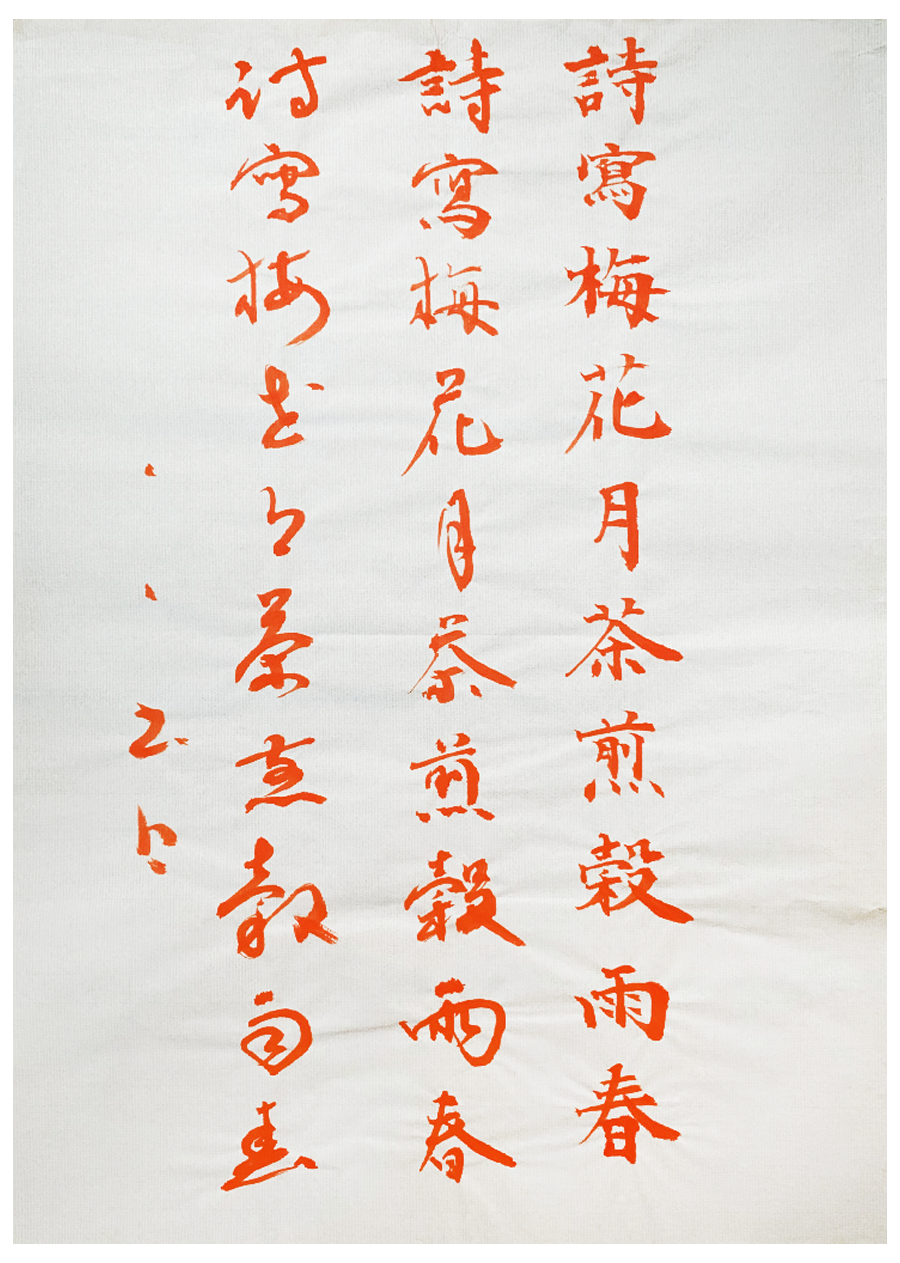 詩寫梅花月茶煎穀雨春
詩寫梅花月茶煎穀雨春
诗寫梅花月茶煎穀雨春